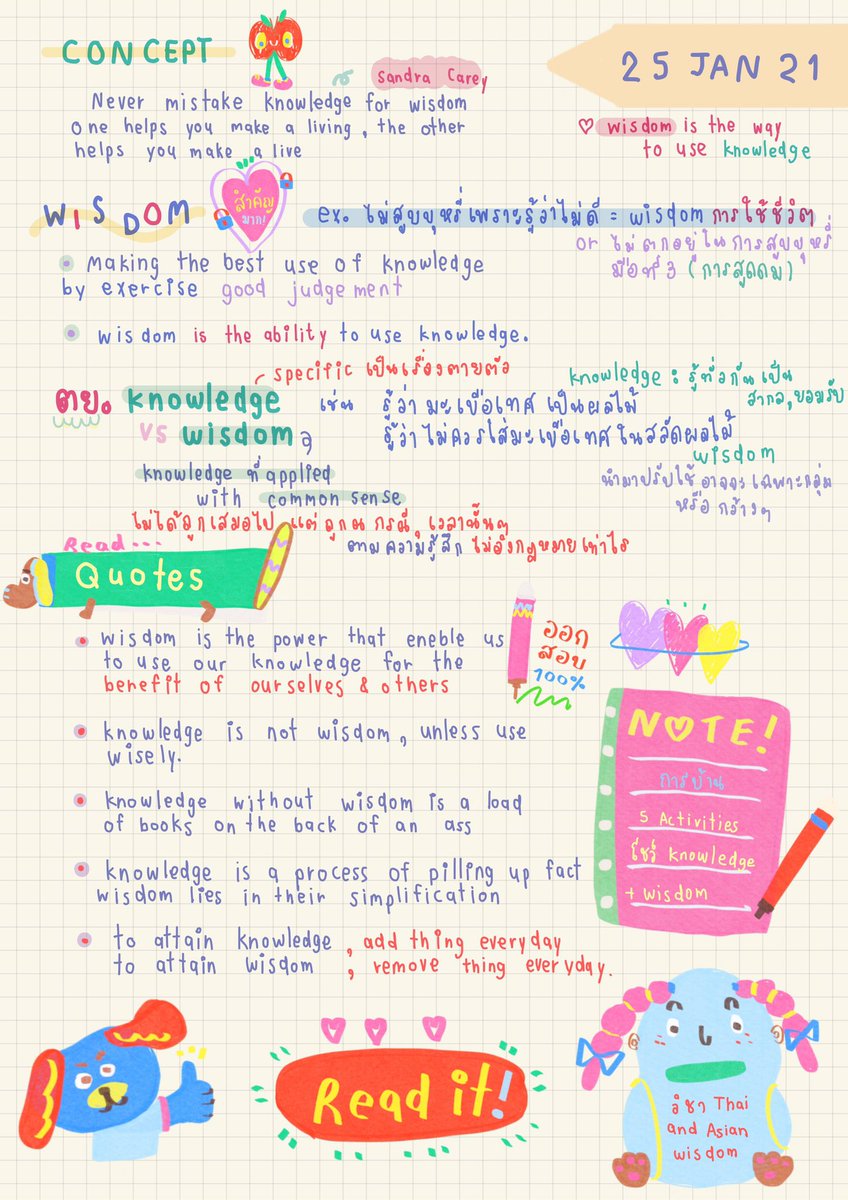 CONCEPT
25 JAN 21
Sandra Carey
Never mistake knowledge for wisdom
One helps you make a living, the other
helps you make a live
♡ wisdom is the way
to use knowledge
WISDOM
สำคัญ
มาก!
ex. ไม่สูบบุหรี่เพราะรู้ว่าไม่ดี = wisdom การใช้ชีวิต
or ไม่ตกอยู่ในการสูบบุหรี่
มือที่ 3 (การสูดดม)
• Making the best use of knowledge
by exercise good judgement
• wisdom is the ability to use knowledge.
specific เป็นเรื่องตายตัว
knowledge : รู้ทั่วกันเป็น
สากล, ยอมรับ
ตย. knowledge เช่น รู้ว่า มะเขือเทศ เป็นผลไม้
vs wisdom รู้ว่าไม่ควรใส่มะเขือเทศ ในสลัดผลไม้
wisdom
นำมาปรับใช้ อาจจะเฉพาะกลุ่ม
หรือ กว้างๆ
knowledge ที่ applied
with common sense
ไม่ได้ถูกเสมอไป แต่ ถูกณ กรณี, เวลานั้นๆ
ตามความรู้สึก ไม่อิงกฎหมายเท่าไร
Read...
Quotes
• wisdom is the power that eneble us
to use our knowledge for the
benefit of ourselves & others
ออก
สอบ
100%
• knowledge is not wisdom, unless use
wisely.
• knowledge without wisdom is a load
of books on the back of an ass
• knowledge is a process of pilling up fact
wisdom lies in their simplification
• to attain knowledge, add thing everyday
to attain wisdom, remove thing everyday.
NOTE!
การบ้าน
5 Activities
โชว์ knowledge
+ wisdom
Read it!
วิชา Thai
and Asian
wisdom